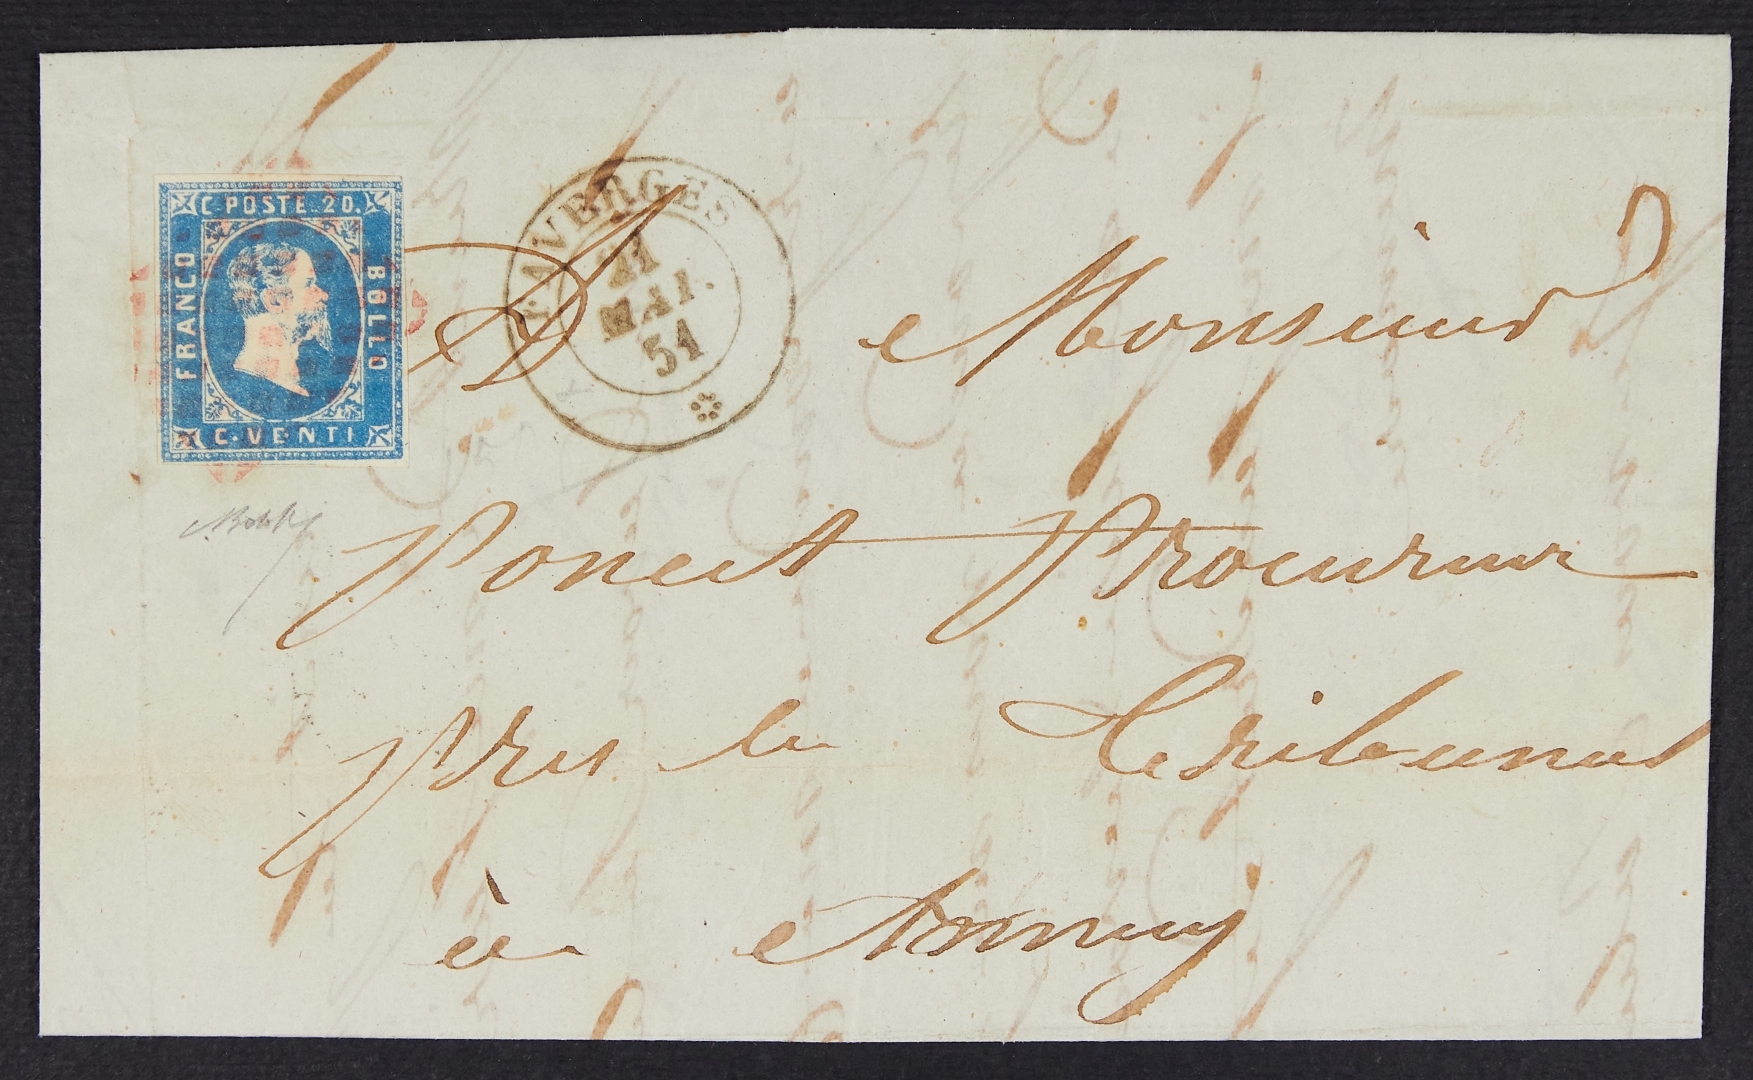 C. POSTE. 20.
FRANCO
BOLLO
C. VENTI
FAVERGES
21
MAI.
51
A Monsieur
Poncet Procureur
Près le Tribunal
à Annecy